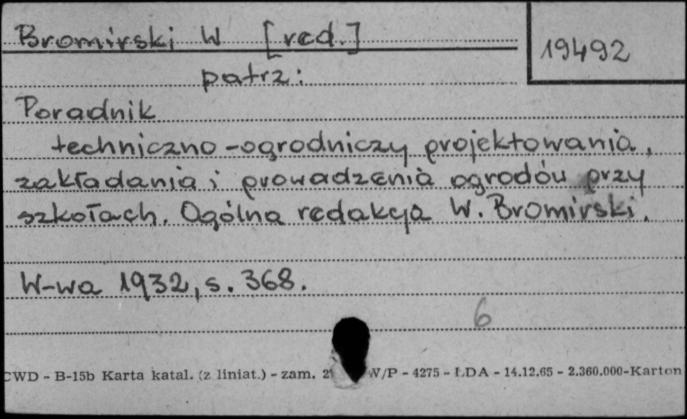 Bromirski W [red.]
19492
patrz:
Poradnik
techniczno-ogrodniczy projektowania,
zakładania i prowadzenia ogrodów przy
szkołach. Ogólna redakcja W. Bromirski.
W-wa 1932, s. 368.
6
CWD - B-15b Karta katal. (z liniat.) - zam. 2 W/P - 4275 - ŁDA - 14.12.65 - 2.360.000-Karton